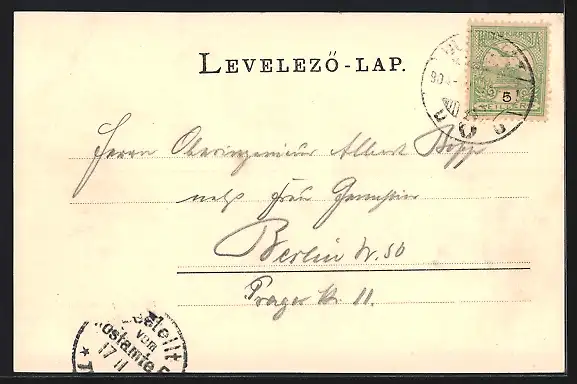 LEVELEZŐ-LAP.
5
Herrn Oberingenieur Albert Bopp
nebst Frau Gemahlin
Berlin W. 50
Prager Str. 11.
Bestellt
vom
Postamte
17 11